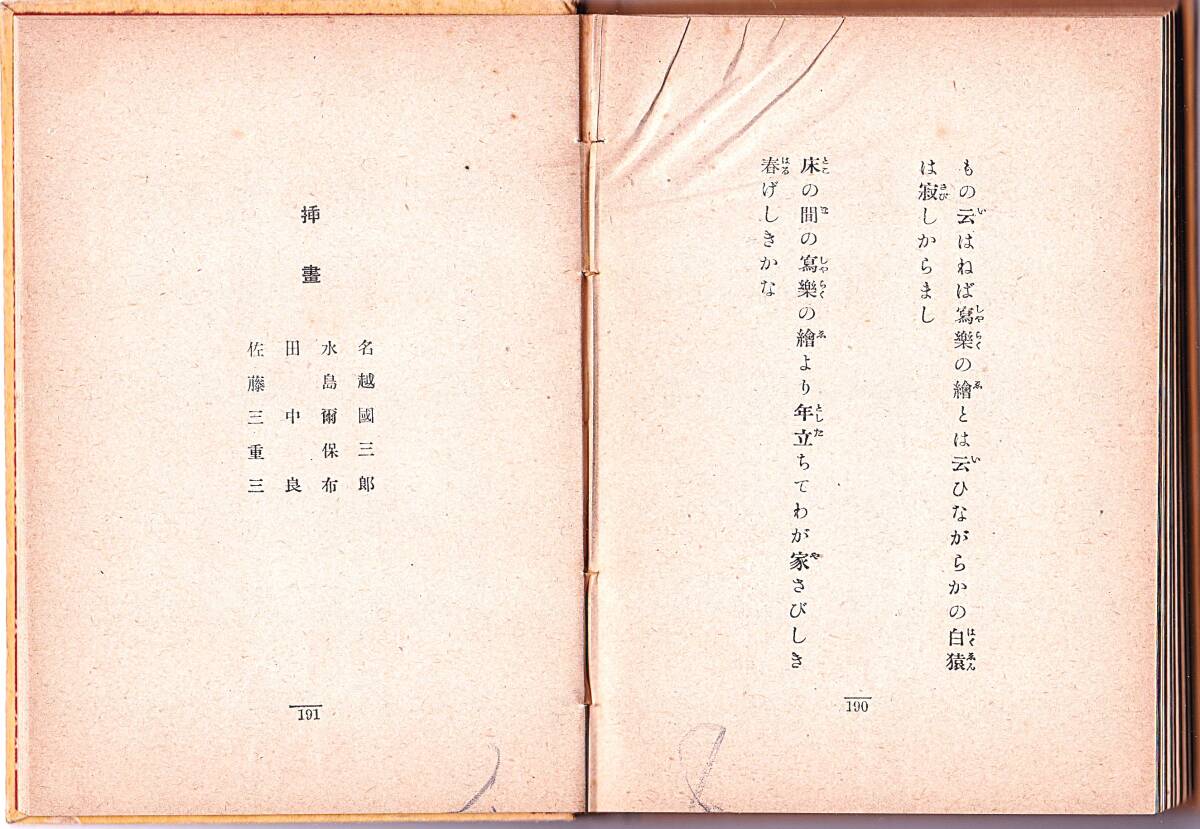 もの云はねば寫樂の繪とは云ひながらかの白猿
は寂しからまし
床の間の寫樂の繪より年立ちてわが家さびしき
春げしきかな
190
挿畫
名越國三郎
水島爾保布
田中良
佐藤三重三
191